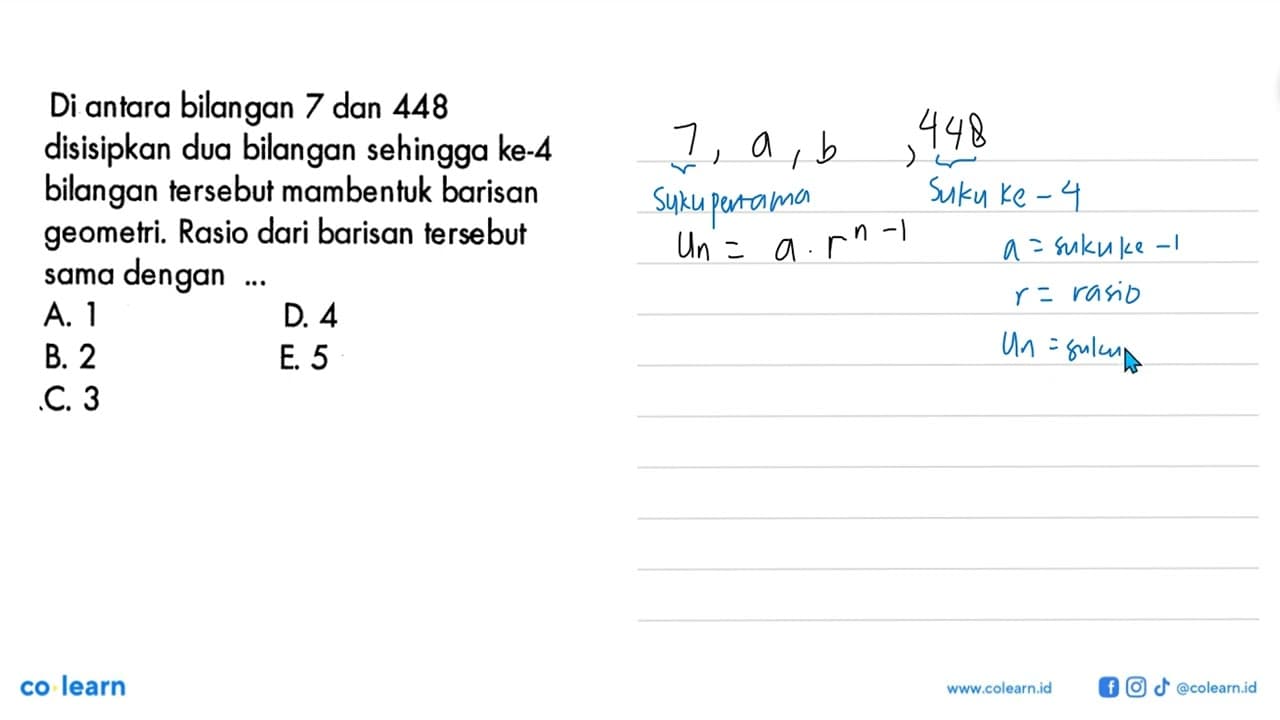 Di antara bilangan 7 dan 448
disisipkan dua bilangan sehingga ke-4
bilangan tersebut mambentuk barisan
geometri. Rasio dari barisan tersebut
sama dengan ...
A. 1 D. 4
B. 2 E. 5
C. 3
7, a, b , 448
suku pertama suku ke - 4
Un = a . r^n-1
a = suku ke -1
r = rasio
Un = suku
co learn
www.colearn.id @colearn.id